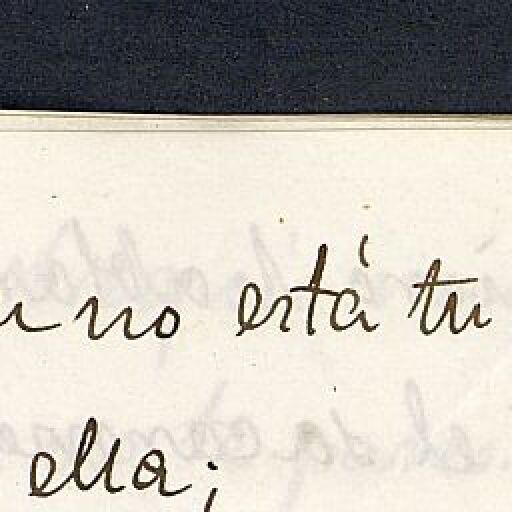 no está tu
ella;